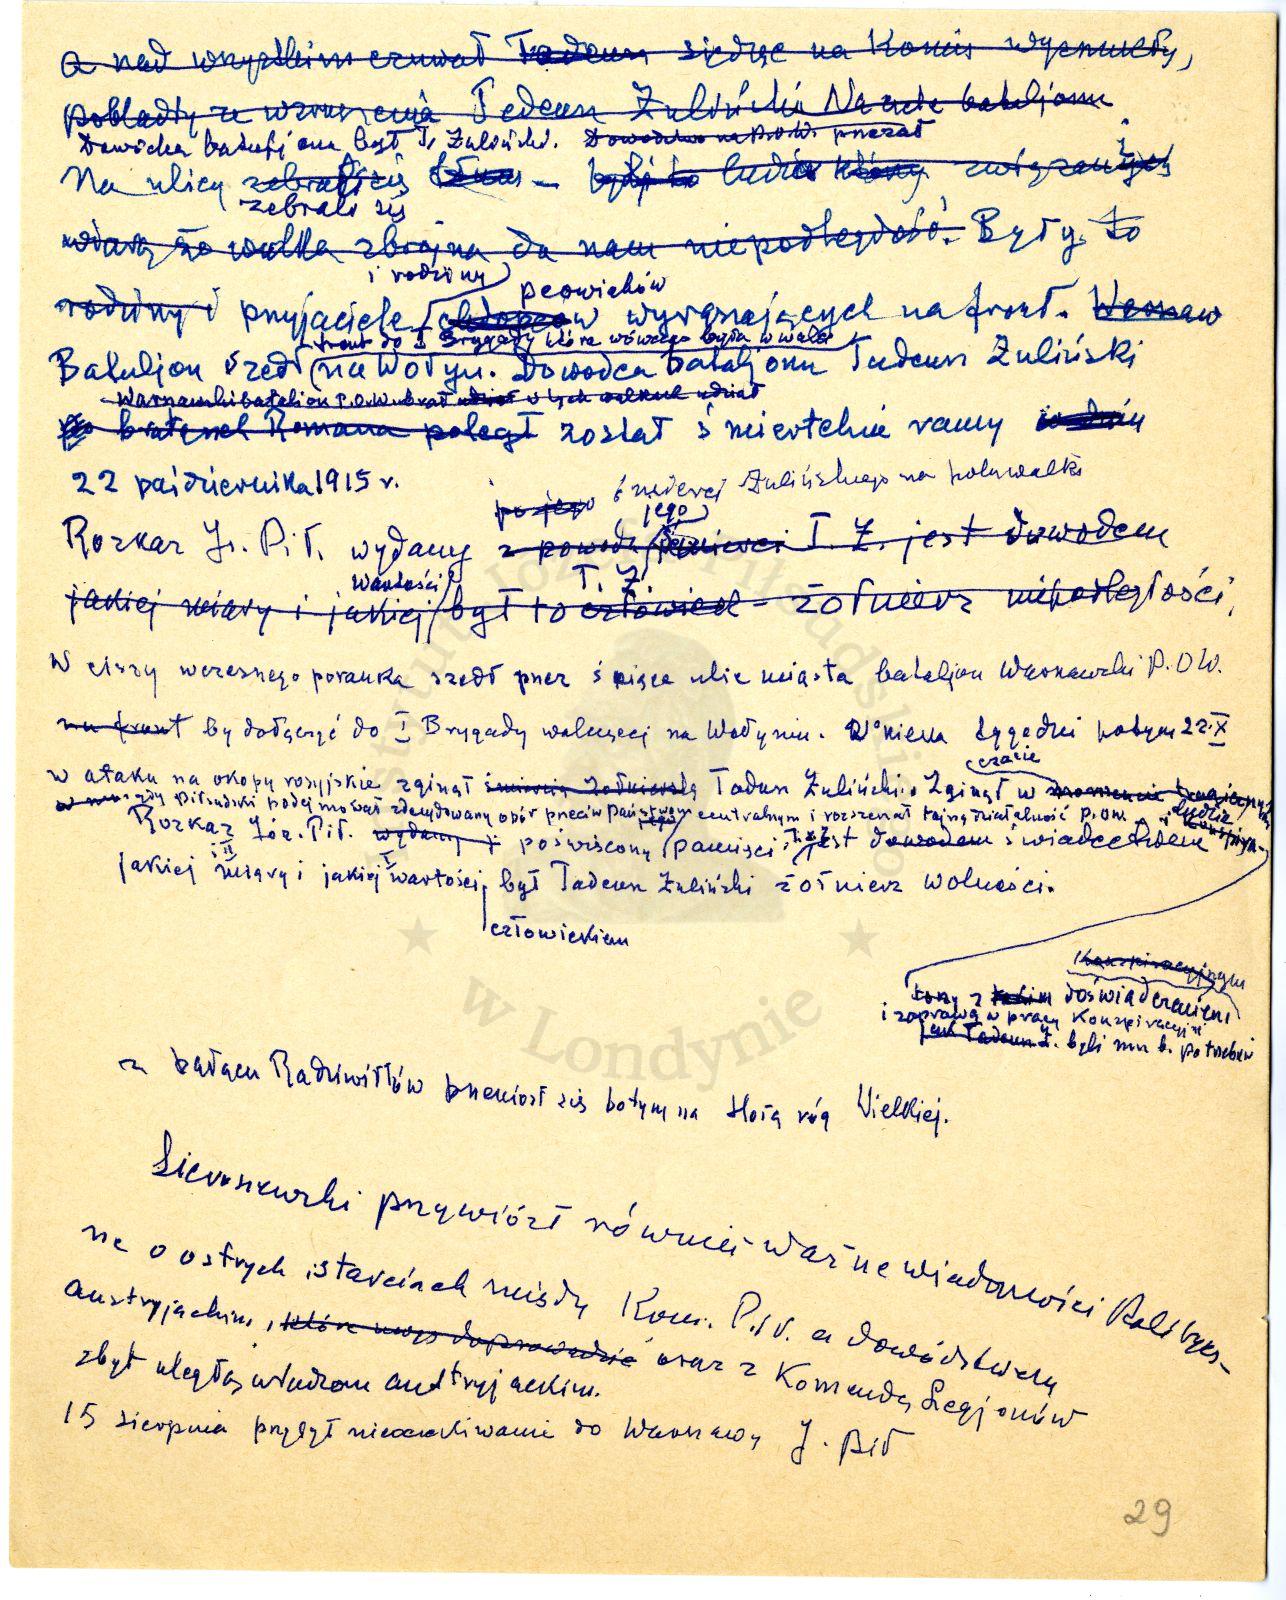 a nad wszystkim czuwał Tadeusz siedząc na koniu wysmukły,
pobladły ze wzruszenia Tadeusz Żuliński. Na czele bataljonu
Dowódcą bataljonu był T. Żuliński. Dowództwo nad P.O.W. przejął
Na ulicy zebrali się tłum – byli to ludzie którzy związani
zebrali się
wiarą że walka zbrojna da nam niepodległość. Były to
i rodziny peowiaków
rodziny i przyjaciele chłopców wyruszających na front. Warszaw
front do I Brygady która wówczas była w walce
Bataljon szedł na Wołyń. Dowódca bataljonu Tadeusz Żuliński
Warszawski bataljon P.O.W. brał udział w tych walkach udział
bratanek Romana poległ został śmiertelnie ranny
22 października 1915 r.
po jego śmierci Żulińskiego na polu walki
jego
Rozkaz J. Pił. wydany z powodu śmierci T. Z. jest dowodem
wartości T. Z.
jakiej wiary i jakiej był to człowiek – żołnierz niepodległości,
W ciszy wczesnego poranka szedł przez śpiące ulice miasta bataljon Warszawski P.O.W.
na front by dołączyć do I Brygady walczącej na Wołyniu. W niecałe tygodni potym 22.X
czasie
w ataku na okopy rosyjskie zginął śmiercią żołnierską Tadeusz Żuliński. Zginął w momencie tragicznym
gdy Piłsudski podejmował zdecydowany opór przeciw państwom centralnym i rozszerzał tajną działalność P.O.W. i ludzie
Rozkaz Józ. Pił. wydany i poświęcony pamięci T.Ż. jest dowodem świadectwem
jakiej miary i jakiej wartości był Tadeusz Żuliński żołnierz wolności.
człowiekiem
Konspiracyjnym
tacy z takim doświadczeniem
i zaprawą w pracy konspiracyjnej
jak Tadeusz Ż. byli mu b. potrzebni
z pałacu Radziwiłłów przeniósł się potym na Złotą róg Wielkiej.
Sieroszewski przywiózł również ważne wiadomości Politycz-
ne o ostrych starciach między Kom. Pił. a dowództwem
austryjackim, które mogą doprowadzić oraz z Komendą Legjonów
zbyt uległą władzom austryjackim.
15 sierpnia przybył nieoczekiwanie do Warszawy J. Pił
29
w Londynie